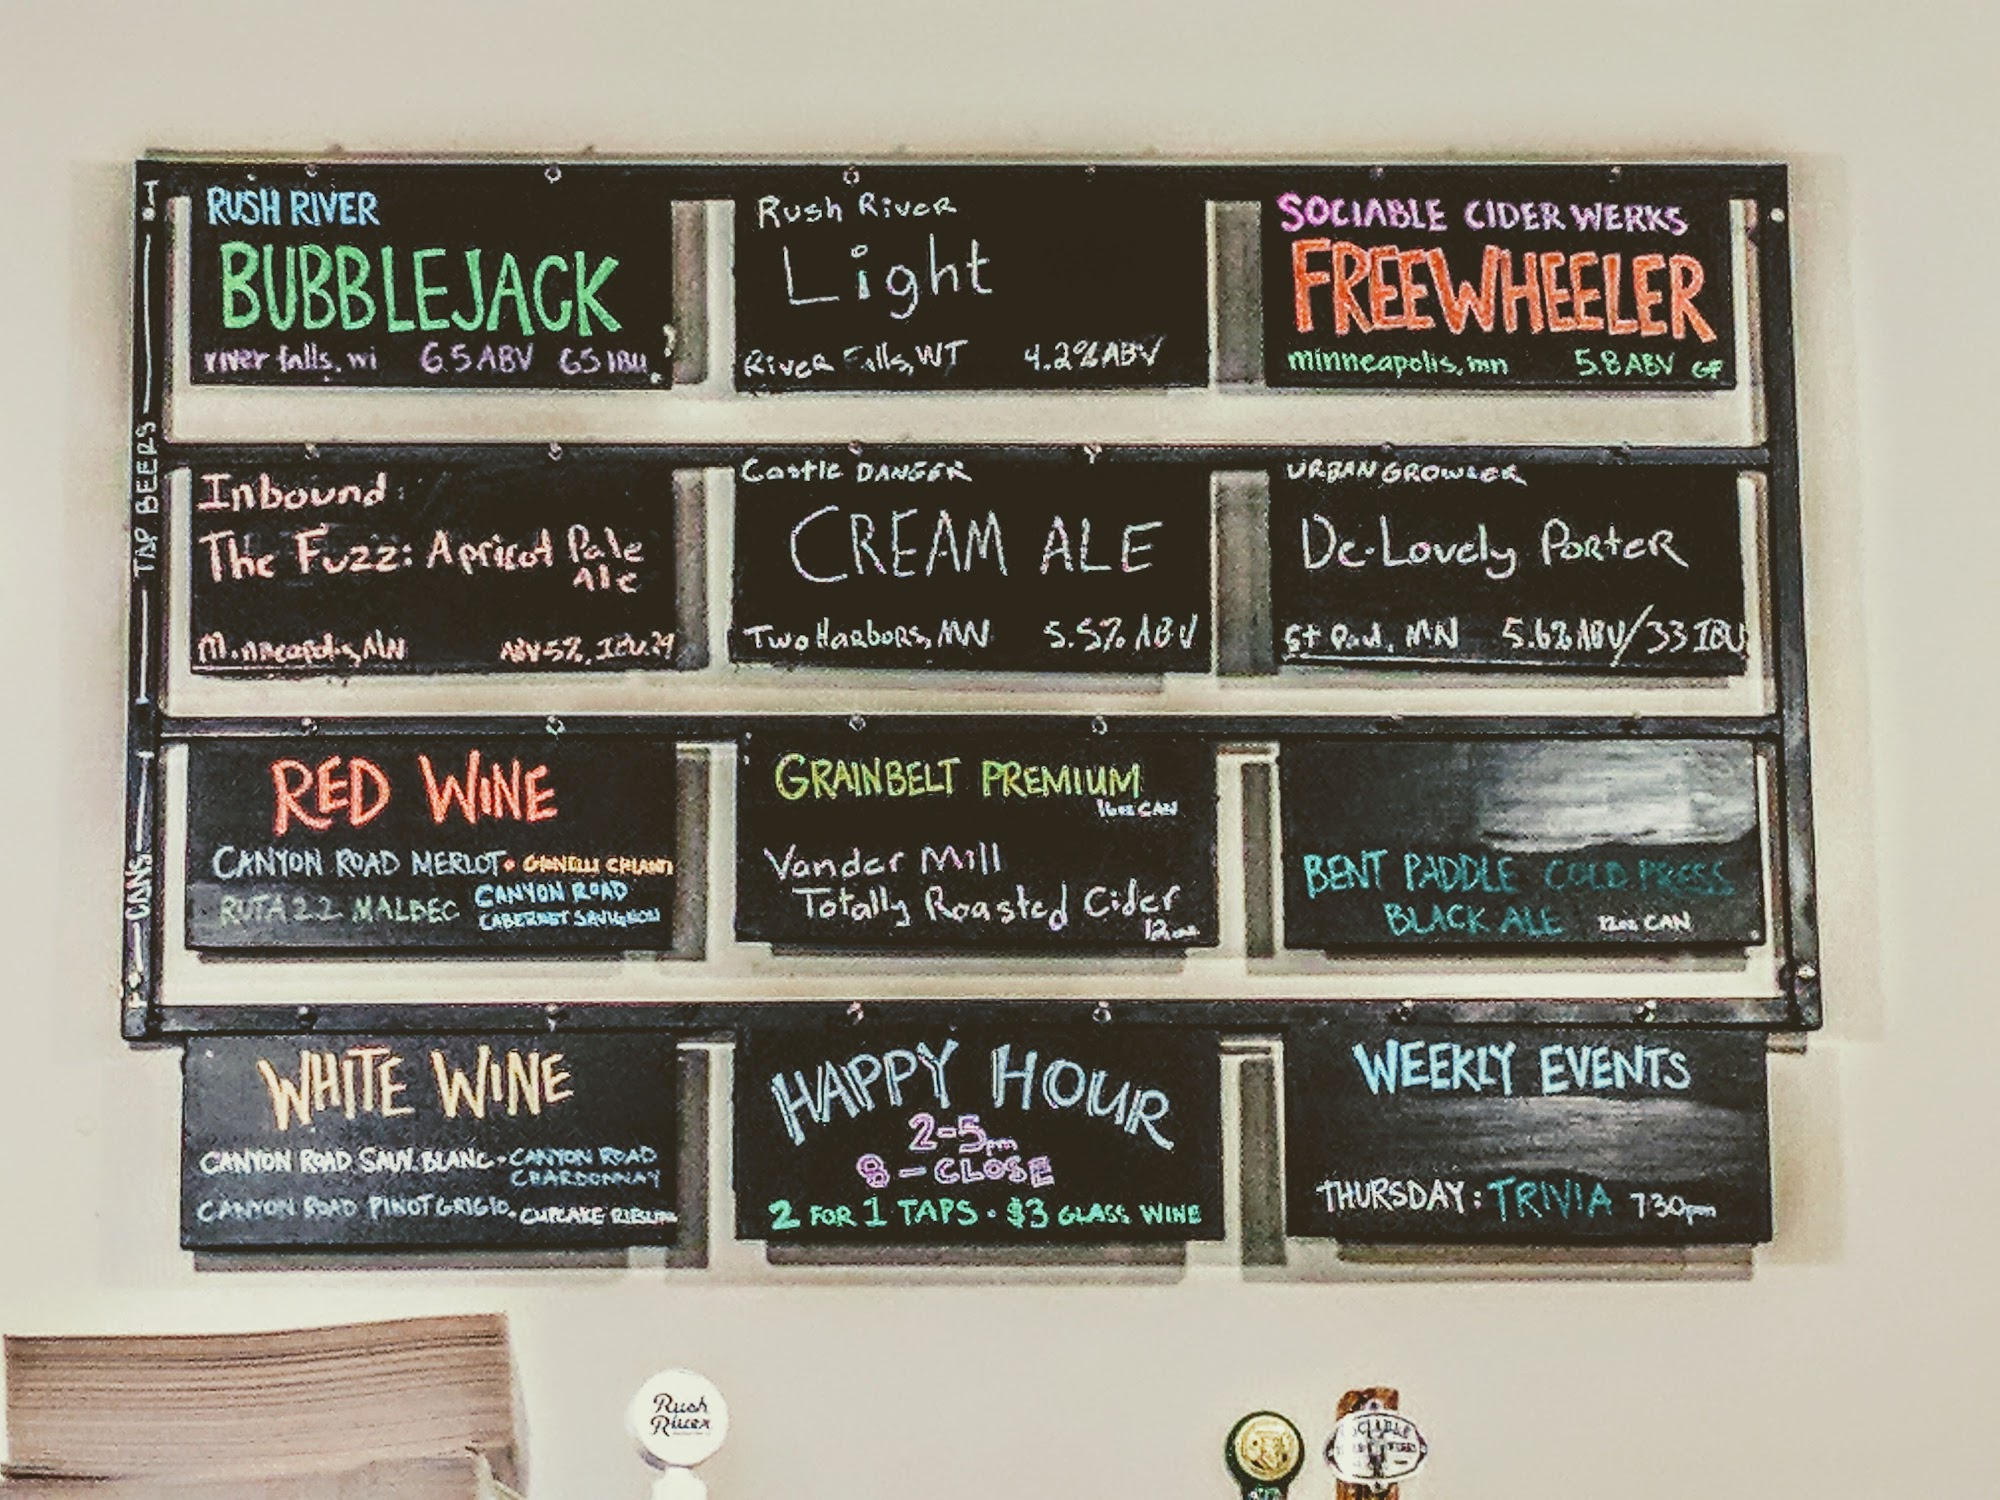 TAP BEERS
CANS
RUSH RIVER
BUBBLEJACK
river falls, wi 6.5 ABV 65 IBU
Rush River
Light
River Falls, WI 4.2% ABV
SOCIABLE CIDER WERKS
FREEWHEELER
minneapolis, mn 5.8 ABV GF
Inbound
The Fuzz: Apricot Pale
Ale
Minneapolis, MN ABV 5%, IBU 29
Castle DANGER
CREAM ALE
Two Harbors, MN 5.5% ABV
URBAN GROWLER
De-Lovely Porter
St Paul, MN 5.6% ABV/33 IBU
RED WINE
CANYON ROAD MERLOT • CHIANTI
RUTA 22 MALBEC CANYON ROAD
CABERNET SAUVIGNON
GRAINBELT PREMIUM
16oz CAN
Vander Mill
Totally Roasted Cider
12oz
BENT PADDLE COLD PRESS
BLACK ALE 12oz CAN
WHITE WINE
CANYON ROAD SAUV. BLANC • CANYON ROAD
CHARDONNAY
CANYON ROAD PINOT GRIGIO • CUPCAKE RIESLING
HAPPY HOUR
2-5pm
8 - CLOSE
2 FOR 1 TAPS • $3 GLASS WINE
WEEKLY EVENTS
THURSDAY: TRIVIA 730pm
Rush
River